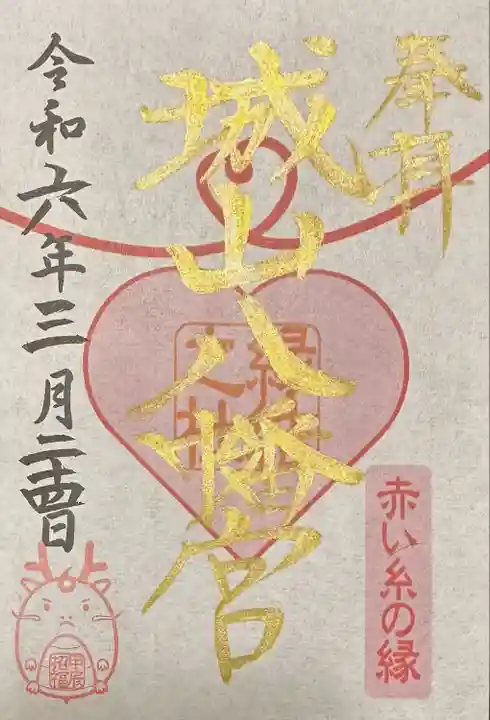 奉拝
城山八幡宮
赤い糸の縁
令和六年三月二十四日
甲辰
招福